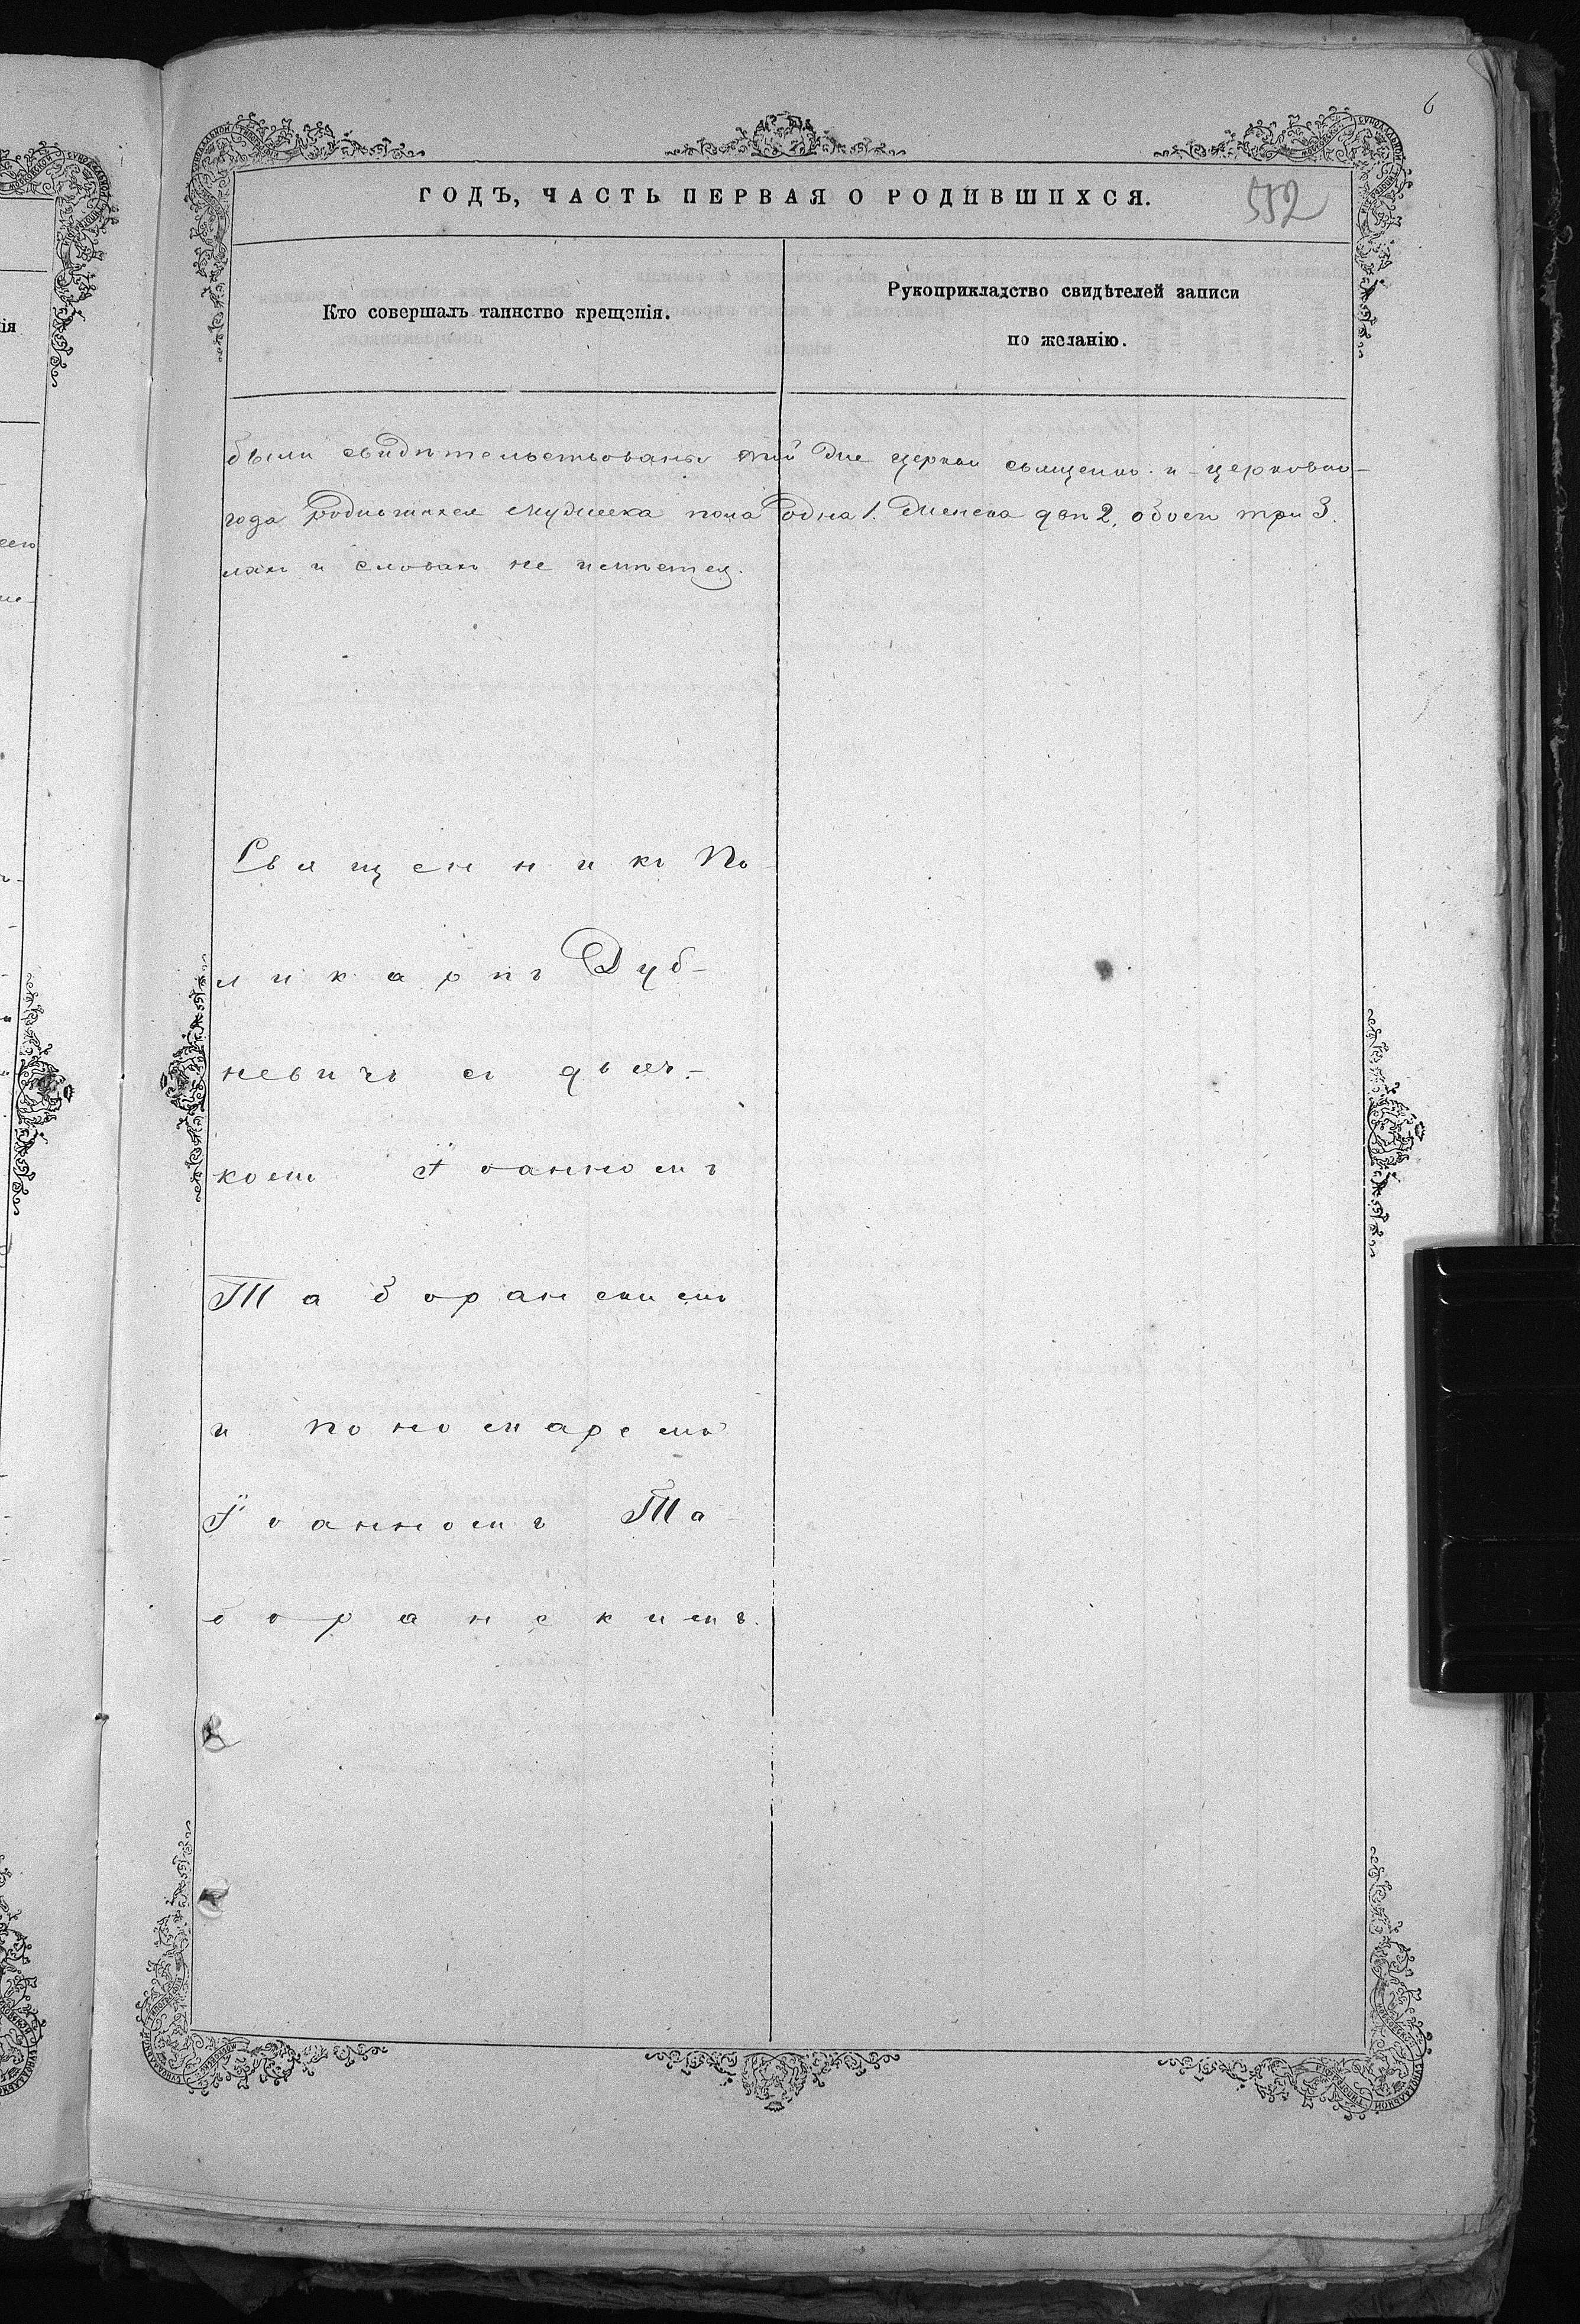 6
ГОДЪ, ЧАСТЬ ПЕРВАЯ О РОДИВШИХСЯ.
552
Кто совершалъ таинство крещенія.
Рукоприкладство свидѣтелей записи
по желанію.
были свидѣтельствованы той же церкви священно- и церковно-
года родившихся мужеска пола одна 1. женска двѣ 2, обоего три 3.
лахъ и словахъ не имѣется.
Священникъ По-
ликарпъ Дуб-
невичъ съ дьяч-
комъ Іоанномъ
Таборанскимъ
и пономаремъ
Іоанномъ Та-
боранскимъ.